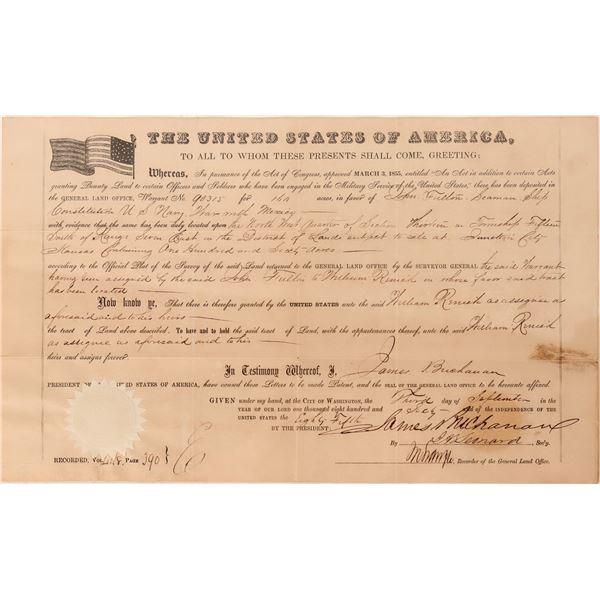 THE UNITED STATES OF AMERICA,
TO ALL TO WHOM THESE PRESENTS SHALL COME, GREETING:
Whereas, In pursuance of the Act of Congress, approved MARCH 3, 1855, entitled "An Act in addition to certain Acts
granting Bounty Land to certain Officers and Soldiers who have been engaged in the Military Service of the United States," there has been deposited in
the GENERAL LAND OFFICE, Warrant No. 90315 for 160 acres, in favor of John Fuller Seaman Ship
Constitution U S Navy War with Mexico
with evidence that the same has been duly located upon the North West Quarter of Section Thirteen in Township Fifteen
South of Range Seven East in the District of Lands subject to sale at Junction City
Kansas Containing One Hundred and Sixty Acres
according to the Official Plat of the Survey of the said Land returned to the GENERAL LAND OFFICE by the SURVEYOR GENERAL the said Warrant
having been assigned by the said John Fuller to William in whose favor said tract
has been located
Now know ye, That there is therefore granted by the UNITED STATES unto the said William as assignee as
aforesaid and to his heirs
the tract of Land above described. To have and to hold the said tract of Land, with the appurtenances thereof, unto the said William
as assignee as aforesaid and to his
heirs and assigns forever.
In Testimony Whereof, I, James Buchanan
PRESIDENT OF UNITED STATES OF AMERICA, have caused these Letters to be made Patent, and the SEAL OF THE GENERAL LAND OFFICE to be hereunto affixed.
GIVEN under my hand, at the CITY OF WASHINGTON, the Third day of September in the
YEAR OF OUR LORD one thousand eight hundred and Sixty and of the INDEPENDENCE OF THE
UNITED STATES the Eighty Fifth
BY THE PRESIDENT James Buchanan
By Sec'y.
RECORDED, Vol. Page 390 Recorder of the General Land Office.